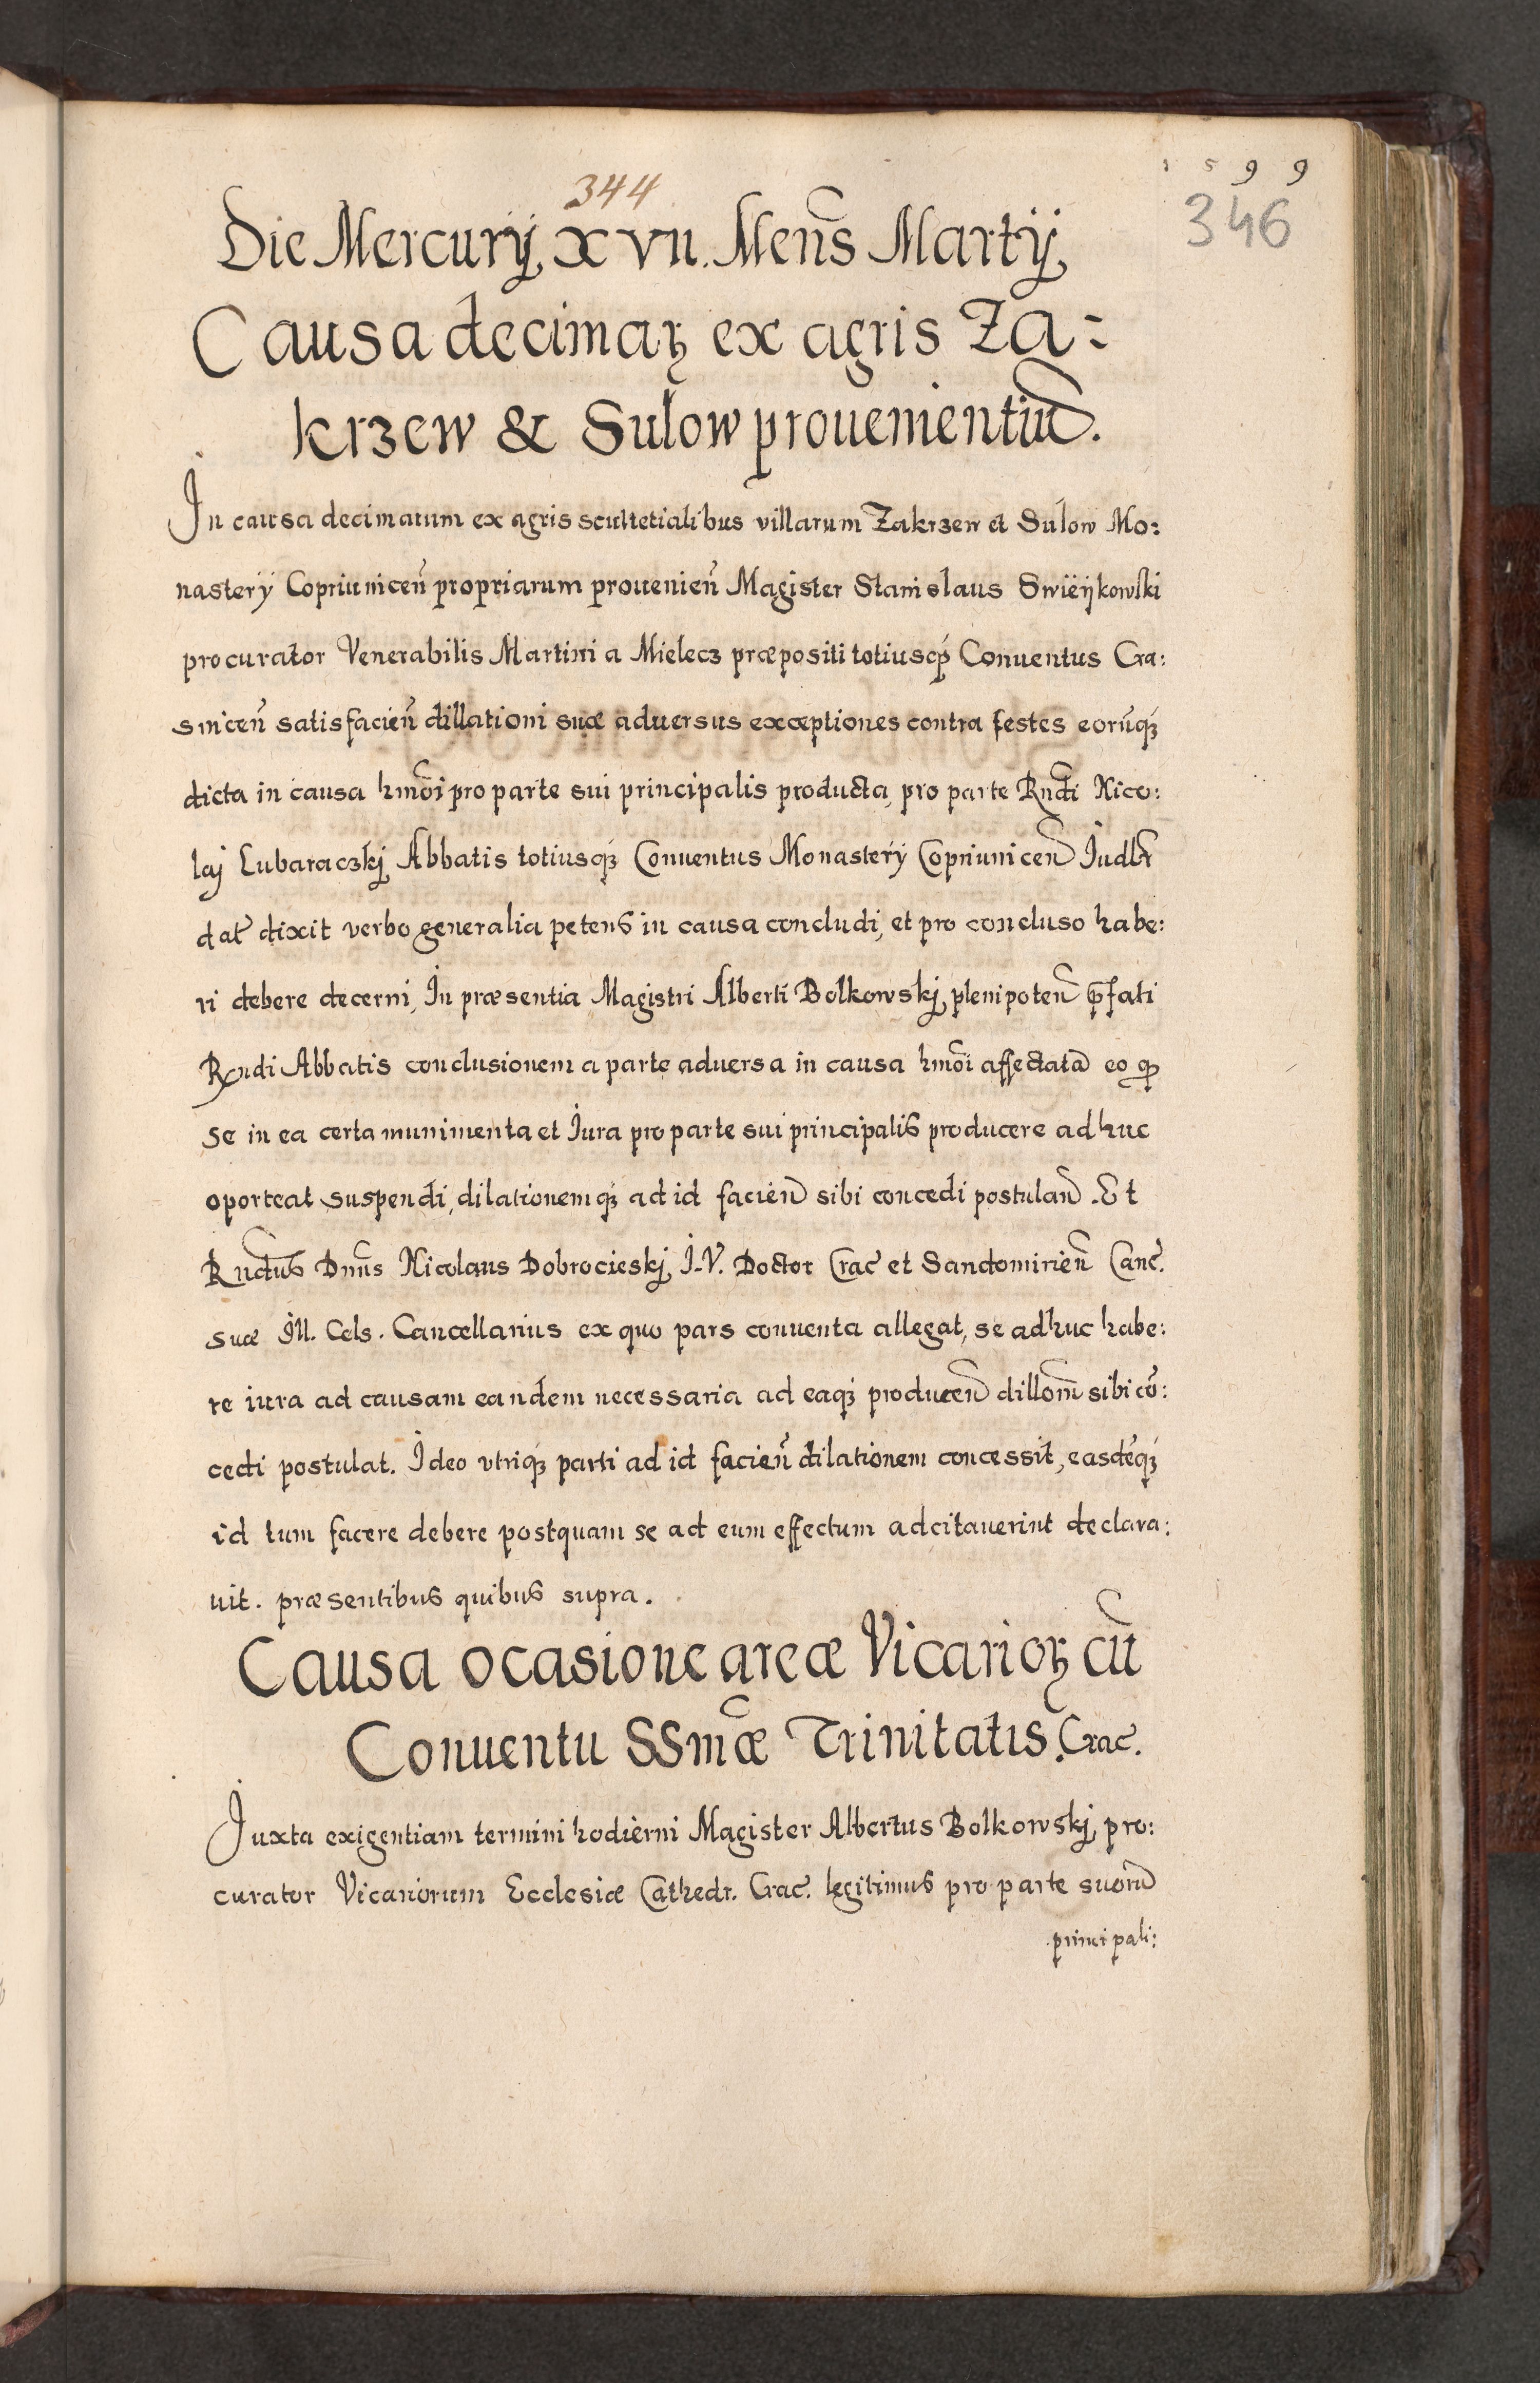 1599
344
346
Die Mercurij, XVII. Menˢ Martij,
Causa decimaꝝ ex agris Za-
krzew & Sulow prouenientiū.
In causa decimarum ex agris scultetialibus villarum Zakrzew et Sulow Mo:
nasterÿ Copriunicen̄ propriarum prouenien̄ Magister Stanislaus Swieÿkowski
procurator Venerabilis Martini a Mielecz præpositi totiusqꝫ Conuentus Cra:
snicen̄ satisfacien̄ dillationi suæ aduersus exceptiones contra testes eorūqꝫ
dicta in causa hmōi pro parte sui principalis producta, pro parte Rn̄di Nico:
laj Lubaraczkj, Abbatis totiusqꝫ Conuentus Monasterÿ Copriunicen̄
dat̄ dixit verbo generalia petens in causa concludi, et pro concluso habe:
ri debere decerni, In præsentia Magistri Alberti Bolkowskj, plenipoten̄ p̄fati
Rn̄di Abbatis conclusionem a parte aduersa in causa hmōi affectatā eo qꝫ
se in ea certa munimenta et Iura pro parte sui principalis producere adhuc
oporteat suspendi, dilationemqꝫ ad id facien̄ sibi concedi postulan̄. Et
Rn̄dus Dn̄us Nicolaus Dobrocieskj, I.V. Doctor Crac̄ et Sandomirien̄ Canc̄.
suæ Ill. Cels. Cancellarius ex quo pars conuenta allegat, se adhuc habe:
re iura ad causam eandem necessaria ad eaqꝫ producen̄ dillon̄m sibi cō:
cedi postulat. Ideo vtriqꝫ parti ad id facien̄ dilationem concessit, easdēqꝫ
id tum facere debere postquam se ad eum effectum adcitauerint declara:
uit. præsentibus quibus supra.
Causa ocasione areæ Vicarioꝝ cū
Conuentu SSmæ Trinitatis. Crac̄.
Iuxta exigentiam termini hodierni Magister Albertus Bolkowskj, pro:
curator Vicariorum Ecclesiæ Cathedr. Crac̄. legitimus pro parte suorū
principali: